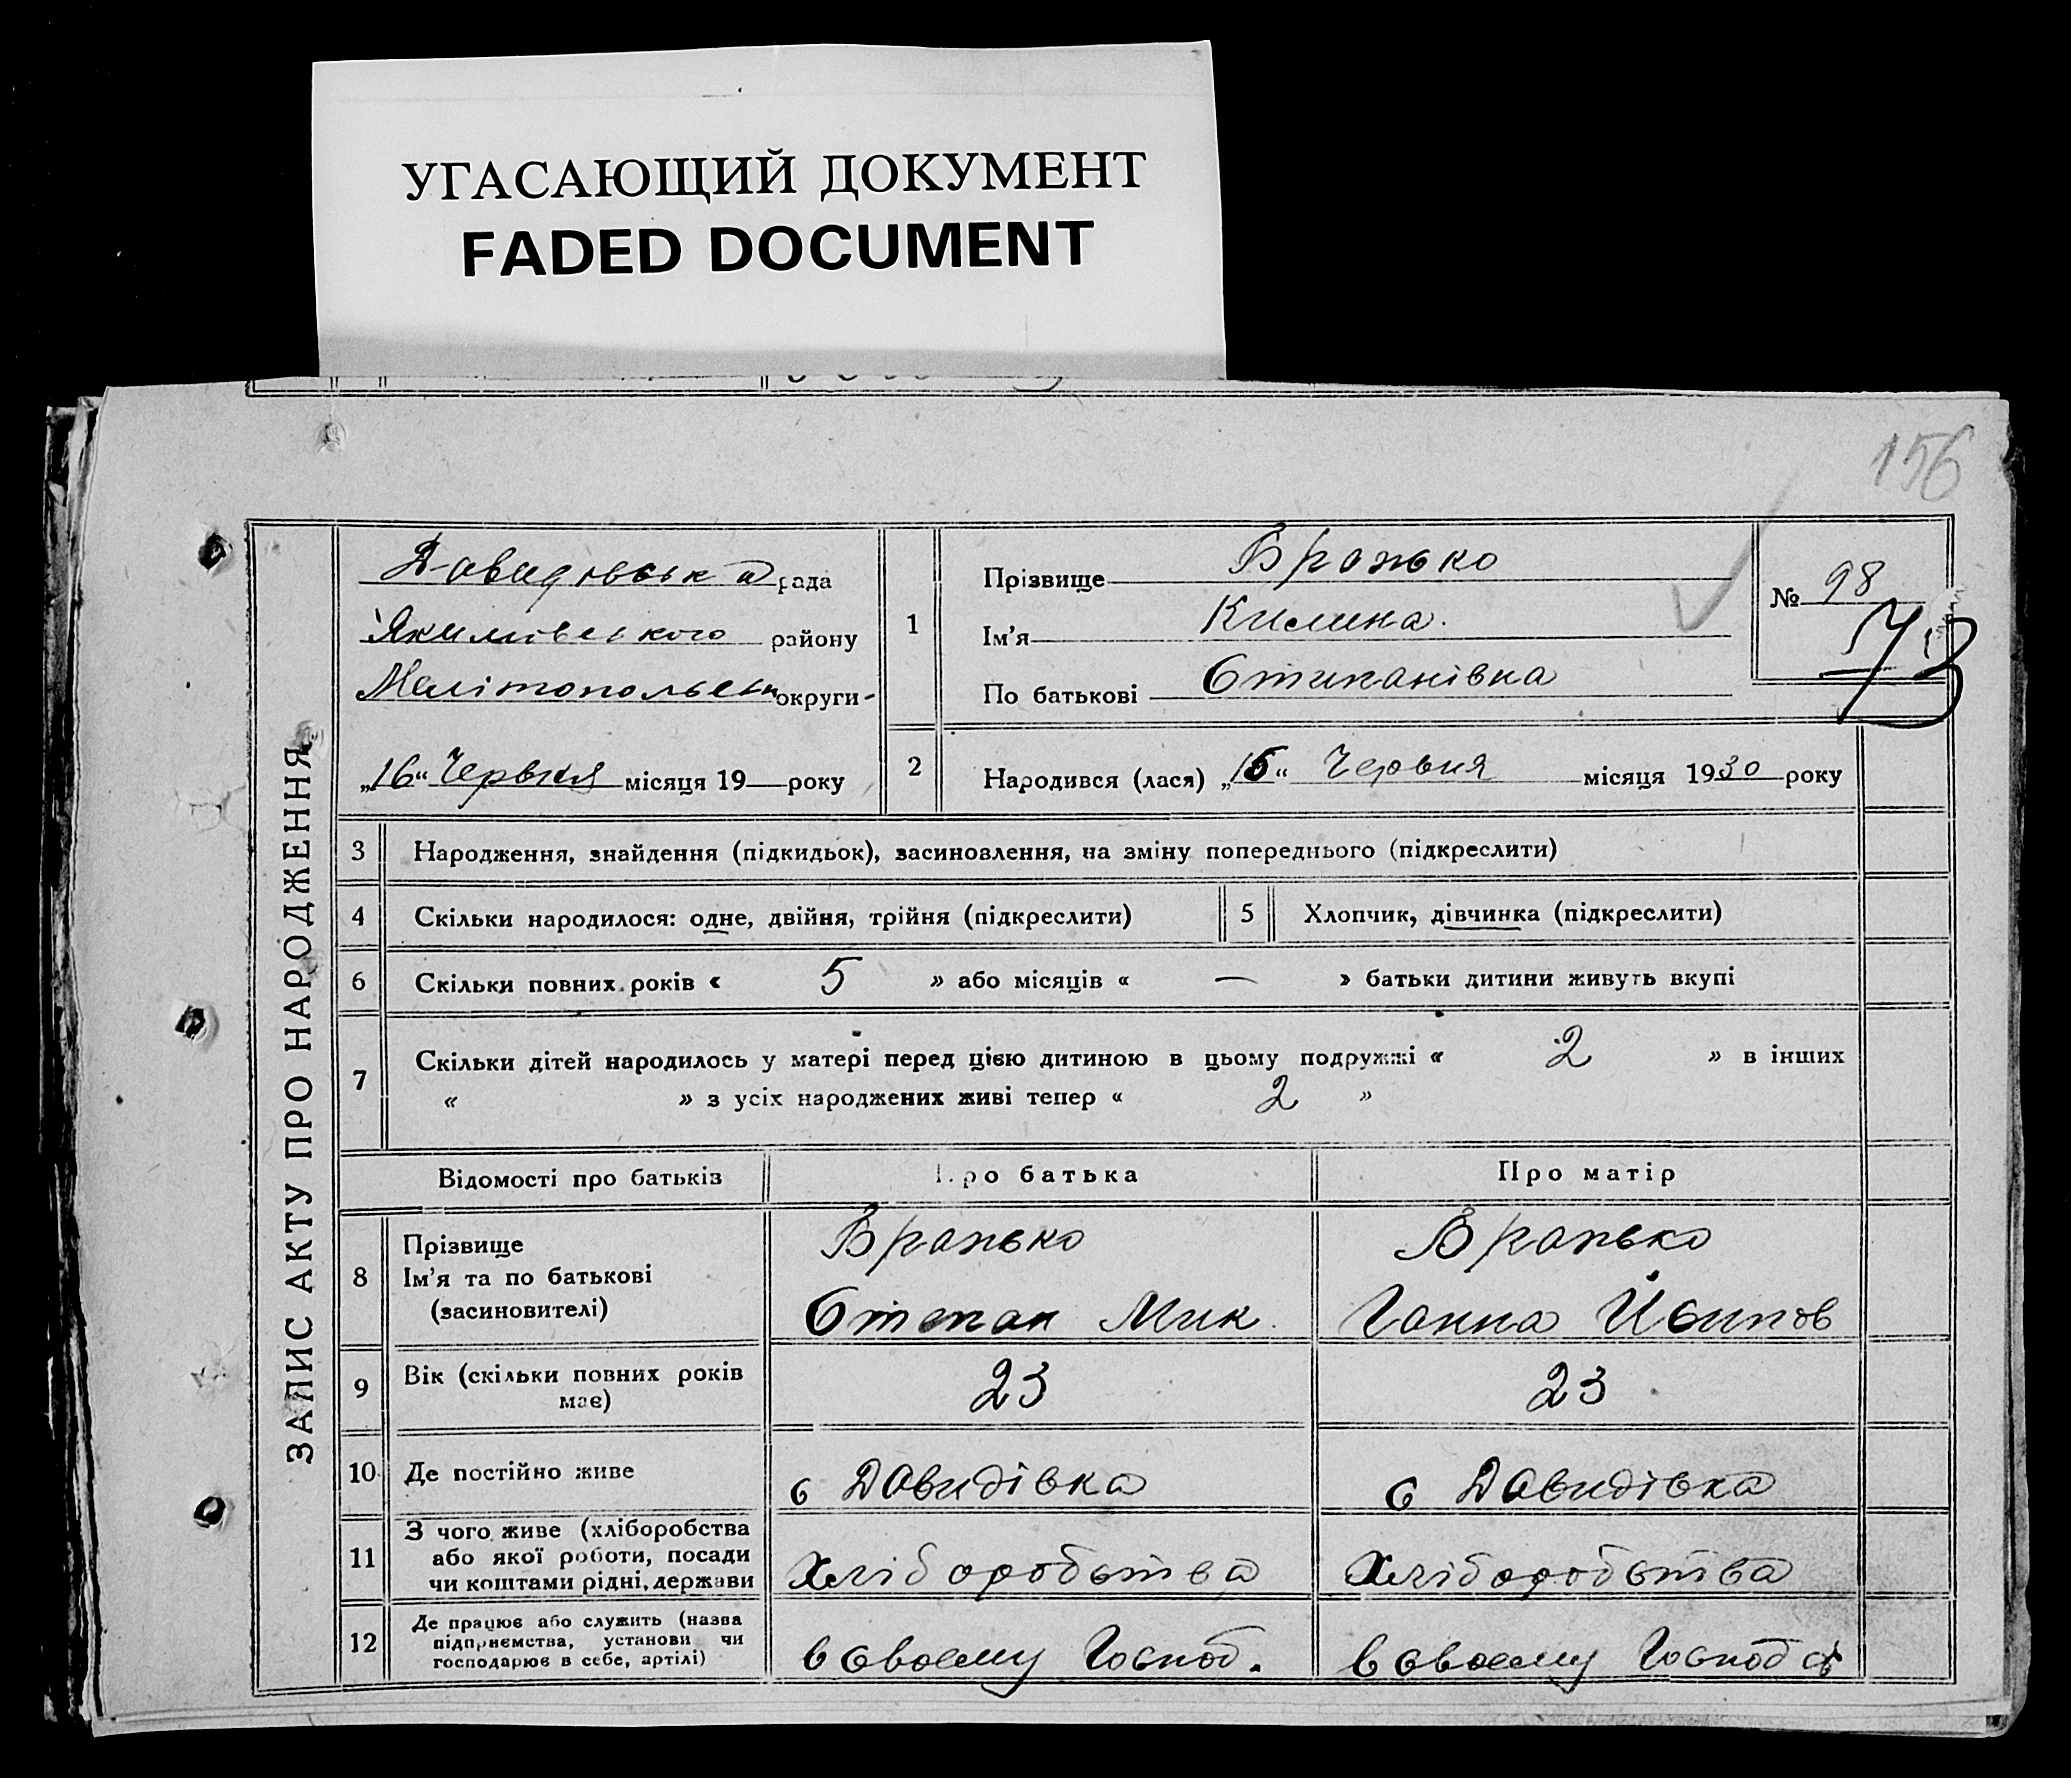 УГАСАЮЩИЙ ДОКУМЕНТ
FADED DOCUMENT
156
ЗАПИС АКТУ ПРО НАРОДЖЕННЯ
Давидовська рада
Якимовського району
Мелітопольськ округи
„16“ Червня місяця 19 року
1
Прізвище Вранько
Ім'я Килина.
По батькові Стипанівна
№ 98
73
2
Народився (лася) „15“ Червня місяця 1930 року
3 Народження, знайдення (підкидьок), засиновлення, на зміну попереднього (підкреслити)
4 Скільки народилося: одне, двійня, трійня (підкреслити)
5 Хлопчик, дівчинка (підкреслити)
6 Скільки повних років « 5 » або місяців « — » батьки дитини живуть вкупі
7 Скільки дітей народилось у матері перед цією дитиною в цьому подружжі « 2 » в інших
« » з усіх народжених живі тепер « 2 »
Відомості про батьків
Про батька
Про матір
8 Прізвище
Ім'я та по батькові
(засиновителі)
Вранько
Степан Мик.
Вранько
Ганна Йосипов
9 Вік (скільки повних років
має)
23
23
10 Де постійно живе
с Давидівка
с Давидівка
11 З чого живе (хліборобства
або якої роботи, посади
чи коштами рідні, держави
Хліборобства
Хліборобства
12 Де працює або служить (назва
підприємства, установи чи
господарює в себе, артілі)
в своєму Госпоd.
в своєму Господ